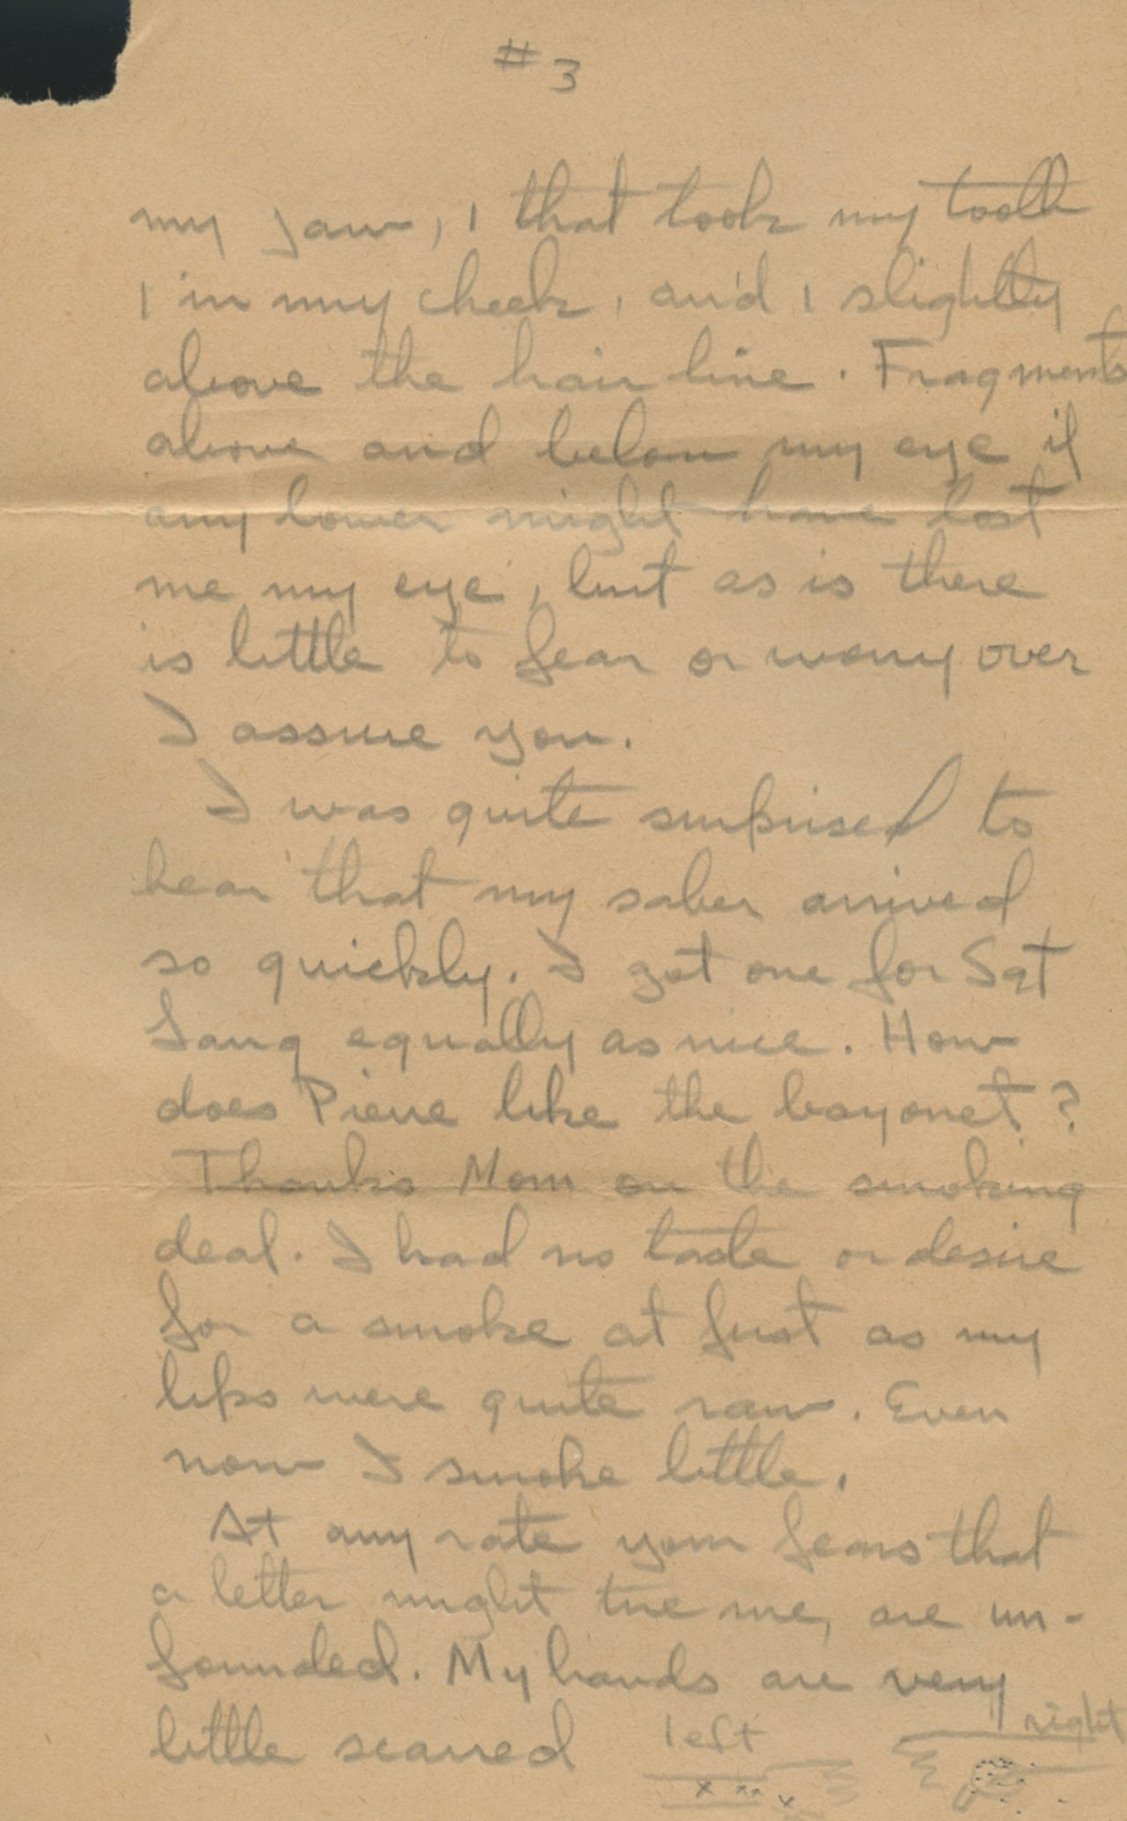 #3
my jaw, 1 that took my tooth
1 in my cheek, and 1 slightly
above the hair line. Fragments
above and below my eye if
any lower might have lost
me my eye, but as is there
is little to fear or worry over
I assure you.
I was quite surprised to
hear that my saber arrived
so quickly. I got one for Sgt
Lang equally as nice. How
does Pierre like the bayonet?
Thanks Mom on the smoking
deal. I had no taste or desire
for a smoke at first as my
lips were quite raw. Even
now I smoke little.
At any rate your fears that
a letter might tire me, are un-
founded. My hands are very
little scarred left right